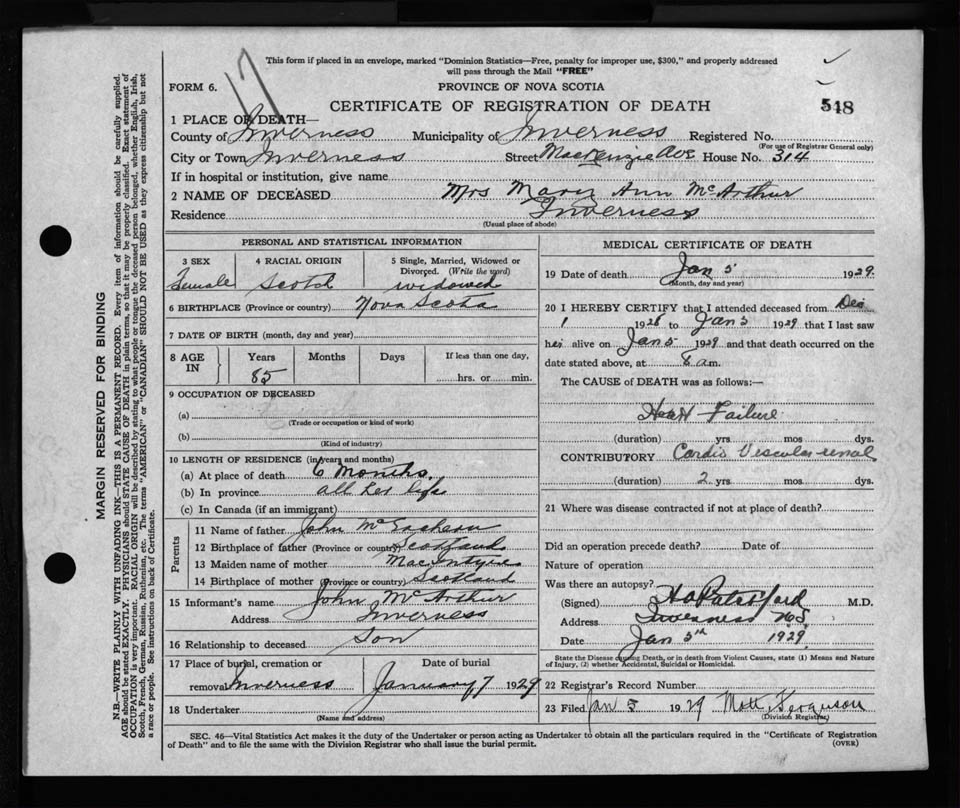 17
This form if placed in an envelope, marked "Dominion Statistics—Free, penalty for improper use, $300," and properly addressed
will pass through the Mail "FREE"
FORM 6.
PROVINCE OF NOVA SCOTIA
CERTIFICATE OF REGISTRATION OF DEATH
548
1 PLACE OF DEATH—
County of Inverness Municipality of Inverness Registered No.
(For use of Registrar General only)
City or Town Inverness Street MacKenzie Ave House No. 314
If in hospital or institution, give name
2 NAME OF DECEASED Mrs Mary Ann McArthur
Residence Inverness
(Usual place of abode)
PERSONAL AND STATISTICAL INFORMATION
3 SEX 4 RACIAL ORIGIN 5 Single, Married, Widowed or
Divorced. (Write the word)
Female Scotch widowed
6 BIRTHPLACE (Province or country) Nova Scotia
7 DATE OF BIRTH (month, day and year)
8 AGE IN Years Months Days If less than one day,
85 hrs. or min.
9 OCCUPATION OF DECEASED
(a)
(Trade or occupation or kind of work)
(b)
(Kind of industry)
10 LENGTH OF RESIDENCE (in years and months)
(a) At place of death 6 Months.
(b) In province all her life
(c) In Canada (if an immigrant)
Parents
11 Name of father John McEachern
12 Birthplace of father (Province or country) Scotland
13 Maiden name of mother MacIntyre
14 Birthplace of mother (Province or country) Scotland
15 Informant's name John McArthur
Address Inverness
16 Relationship to deceased Son
17 Place of burial, cremation or Date of burial
removal Inverness January 7 1929
18 Undertaker
(Name and address)
MEDICAL CERTIFICATE OF DEATH
19 Date of death Jan 5 1929.
(Month, day and year)
20 I HEREBY CERTIFY that I attended deceased from Dec
1 1928 to Jan 5 1929 that I last saw
her alive on Jan 5 1929 and that death occurred on the
date stated above, at 8 am.
The CAUSE of DEATH was as follows:—
Heart Failure
(duration) yrs. mos. dys.
CONTRIBUTORY Cardio Vascular renal
(duration) 2 yrs. mos. dys.
21 Where was disease contracted if not at place of death?
Did an operation precede death? Date of
Nature of operation
Was there an autopsy?
(Signed) M.D.
Address Inverness NS
Date Jan 5th 1929
State the Disease causing Death, or in death from Violent Causes, state (1) Means and Nature
of Injury, (2) whether Accidental, Suicidal or Homicidal.
22 Registrar's Record Number
23 Filed Jan 5 1929 Ferguson
(Division Registrar)
SEC. 46—Vital Statistics Act makes it the duty of the Undertaker or person acting as Undertaker to obtain all the particulars required in the "Certificate of Registration
of Death" and to file the same with the Division Registrar who shall issue the burial permit. (OVER)
MARGIN RESERVED FOR BINDING
N.B.—WRITE PLAINLY WITH UNFADING INK—THIS IS A PERMANENT RECORD. Every item of information should be carefully supplied.
AGE should be stated EXACTLY. PHYSICIANS should STATE CAUSE OF DEATH in plain terms, so that it may be properly classified. Exact statement of
OCCUPATION is very important. RACIAL ORIGIN will be described by stating to what people or tongue the deceased person belonged, whether English, Irish,
Scotch, French, German, Russian, Ruthenian, etc. The terms "AMERICAN" or "CANADIAN" SHOULD NOT BE USED as they express citizenship but not
a race or people. See instructions on back of Certificate.